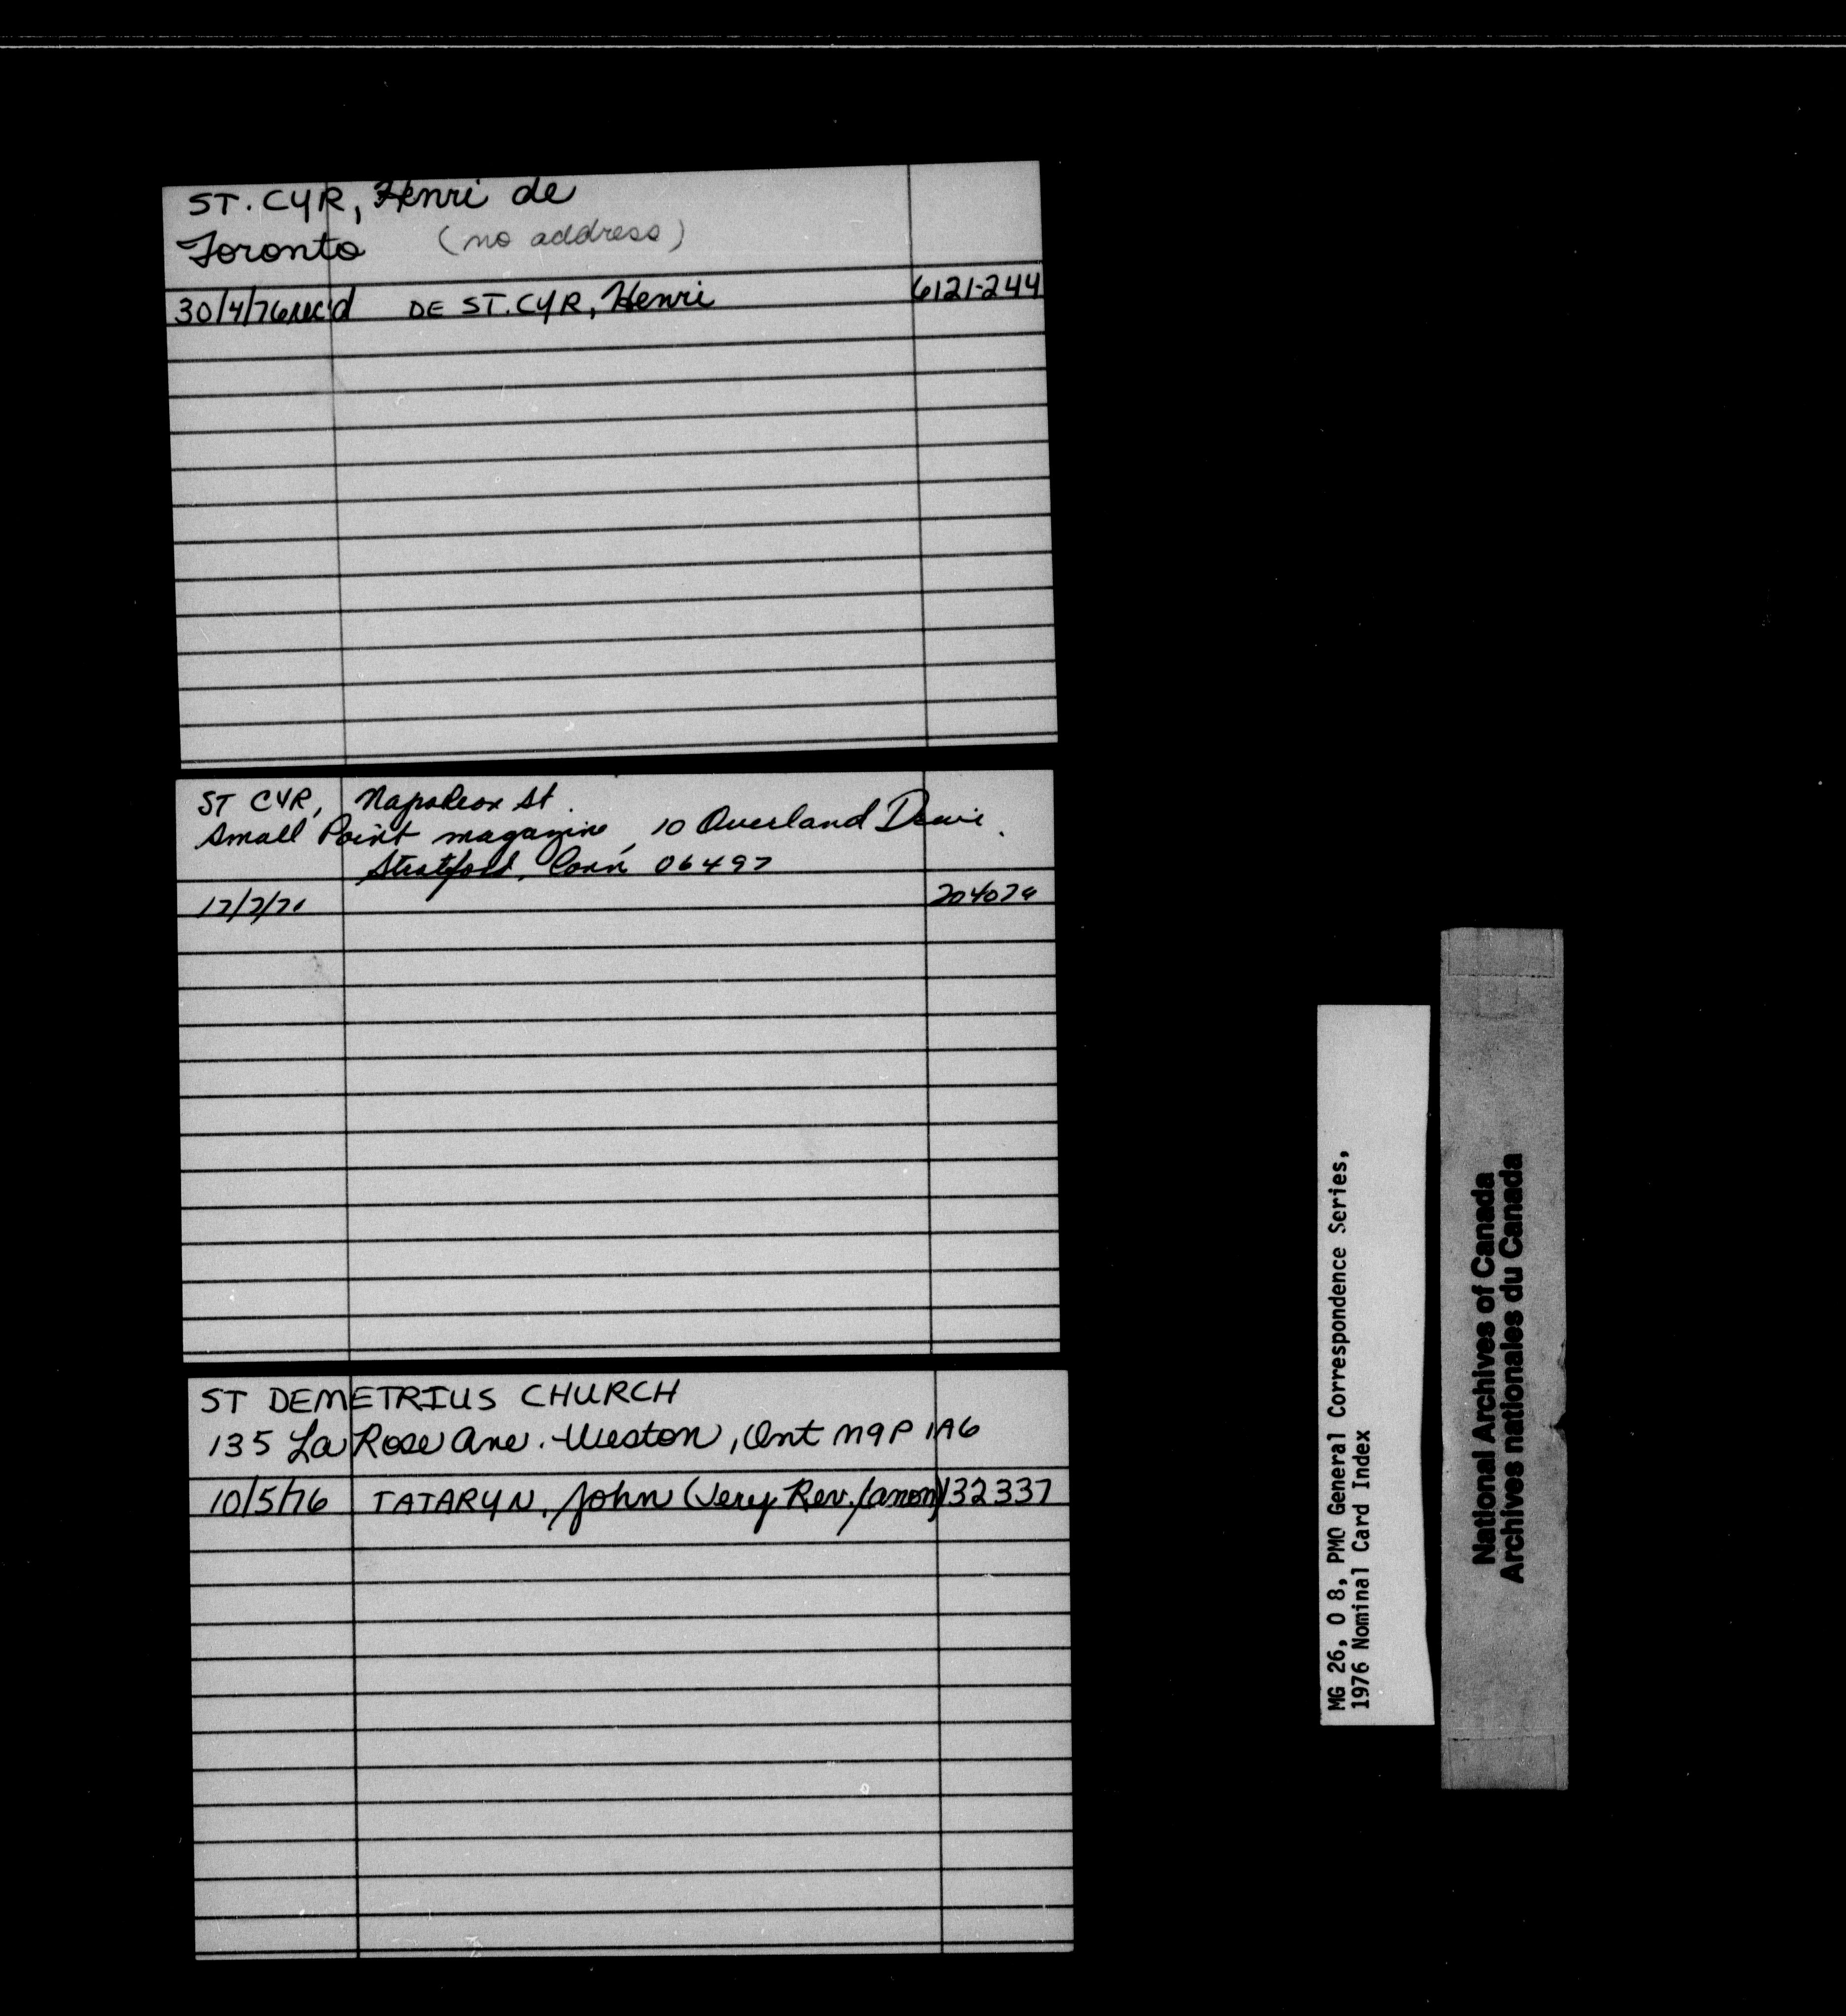 ST. CYR, Henri de
Toronto (no address)
30/4/76 rec'd DE ST. CYR, Henri 6121-244
ST CYR, Napoleon St.
Small Point magazine, 10 Overland Drive.
Stratford, Conn 06497
204074
ST DEMETRIUS CHURCH
135 La Rose Ave. Weston, Ont M9P 1A6
10/5/76 TATARYN, John (Very Rev. Canon) 132337
MG 26, O 8, PMO General Correspondence Series,
1976 Nominal Card Index
National Archives of Canada
Archives nationales du Canada